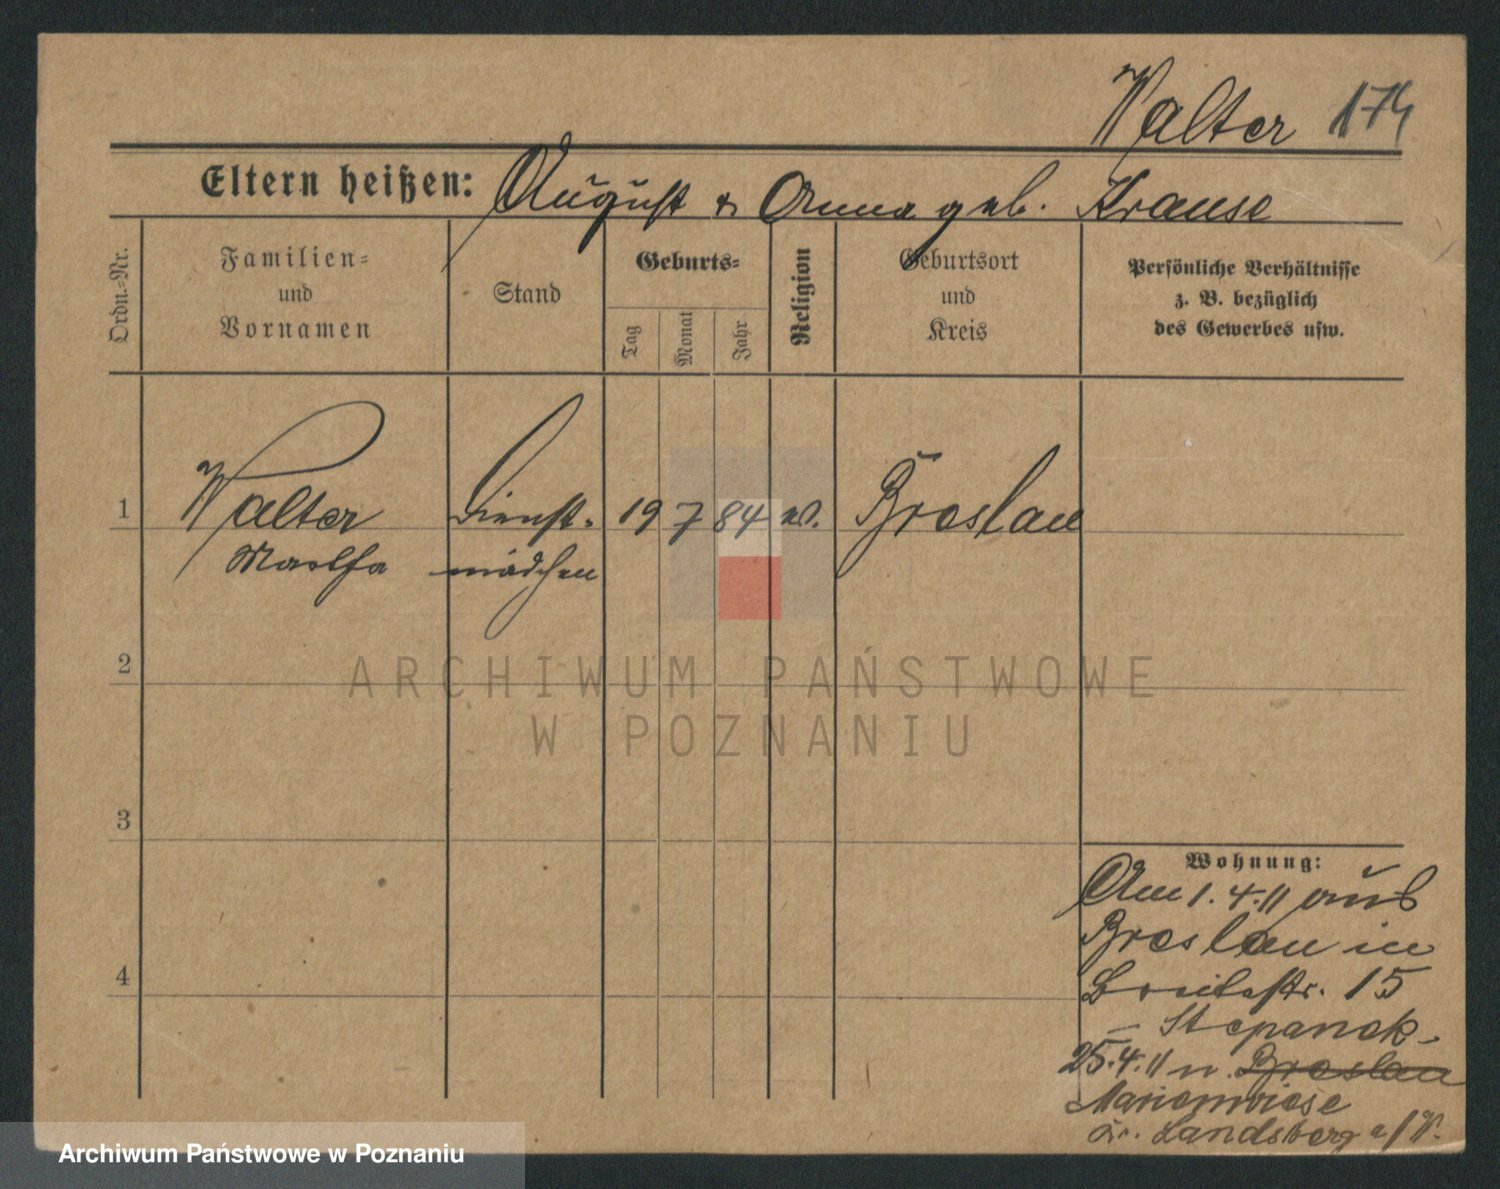 Walter 174
Eltern heißen: August & Anna geb. Krause
Ordn.-Nr.
Familien-
und
Vornamen
Stand
Geburts-
Tag
Monat
Jahr
Religion
Geburtsort
und
Kreis
Persönliche Verhältnisse
z. B. bezüglich
des Gewerbes usw.
1 Walter Dienst- 19 7 84 ev. Breslau
Martha mädchen
2
3
4
Wohnung:
Am 1.4.11 aus
Breslau in
Breitestr. 15
- Stepanek.
25.4.11 n. Breslau
Marienwiese
Kr. Landsberg a/W.
ARCHIWUM PAŃSTWOWE
W POZNANIU
Archiwum Państwowe w Poznaniu